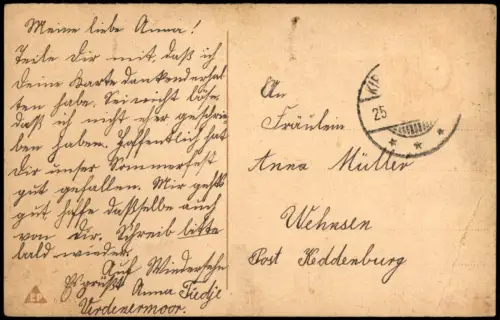 Meine liebe Anna!
Teile Dir mit, daß ich
deine Karte dankend erhal
ten habe. Sei nicht böse,
daß ich nicht eher geschrie
ben haben. Hoffentlich hat
Dir unser Sommerfest
gut gefallen. Mir geht's
gut hoffe daßselbe auch
von Dir. Schreib bitte
bald wieder.
Auf Wiedersehn
Es grüßt Anna Tiedje
Verdenermoor.
An
Fräulein
Anna Müller
Wehnsen
Post Keddenburg
25